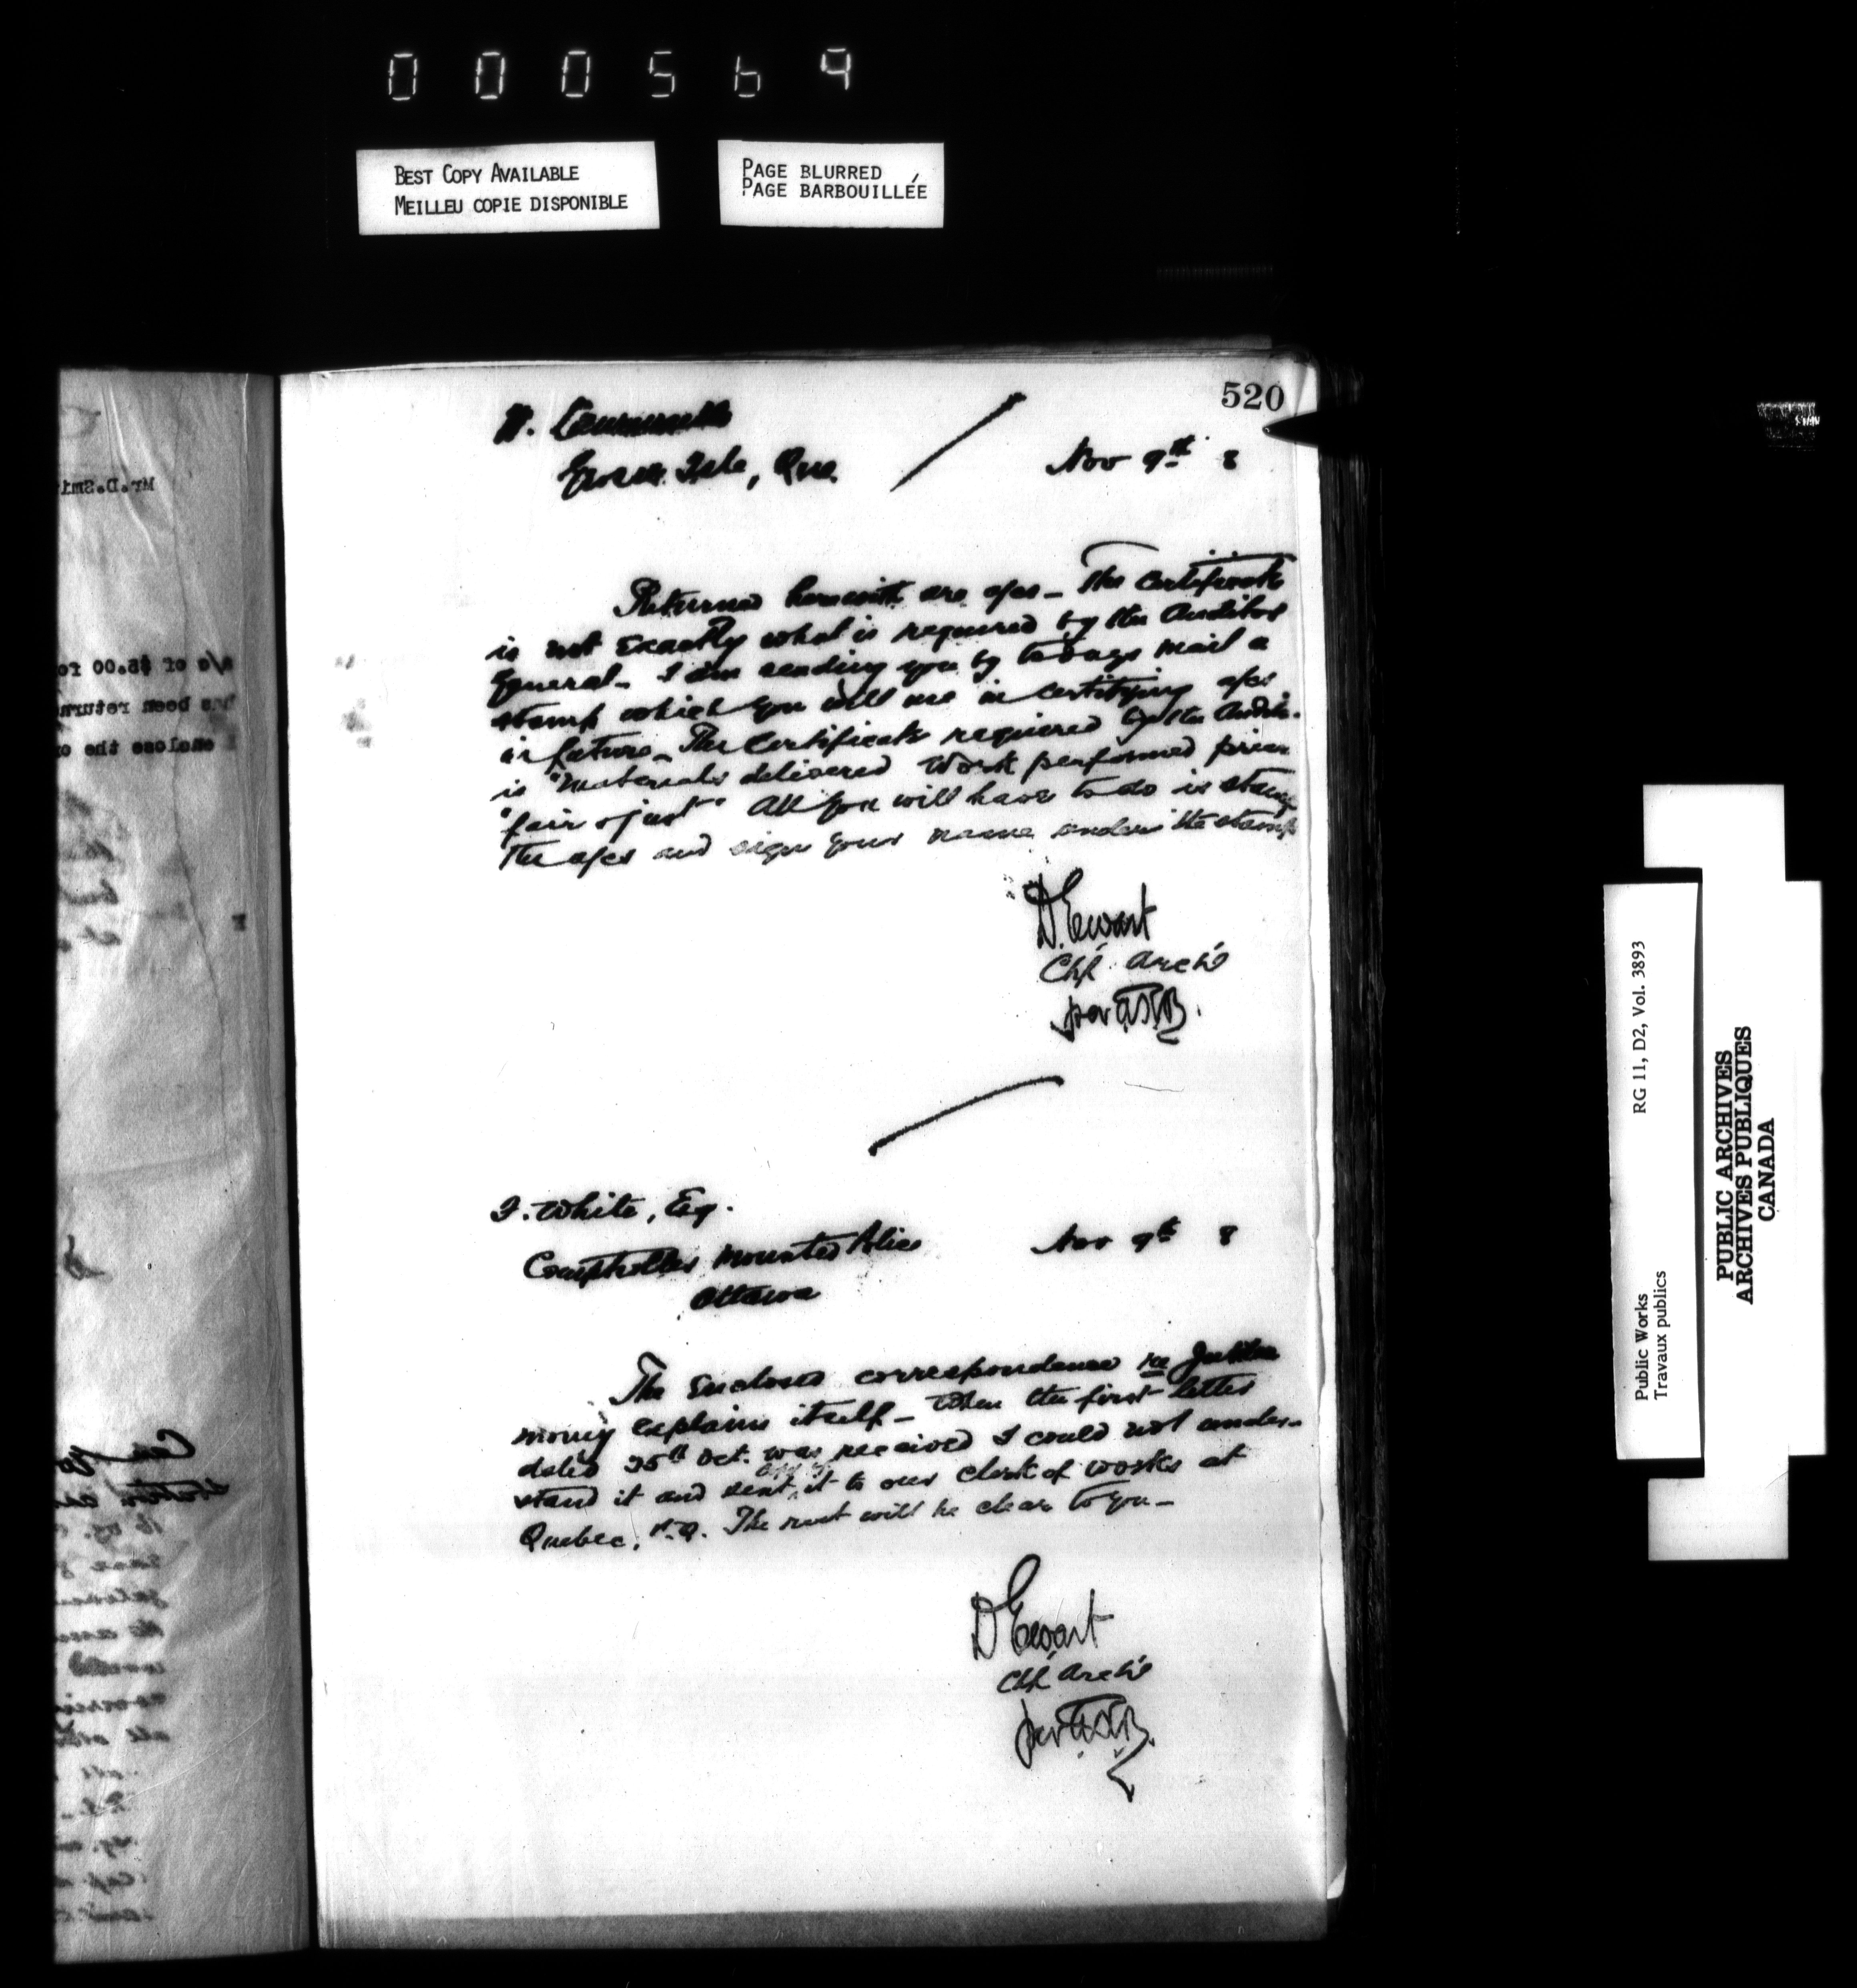 000569
BEST COPY AVAILABLE
MEILLEU COPIE DISPONIBLE
PAGE BLURRED
PAGE BARBOUILLÉE
520
Grosse Isle, Que.
Nov 9th 8
Returned herewith are a/cs – The Certificate
is not exactly what is required by the Auditor
General – I am sending you by todays mail a
stamp which you will use in certifying a/cs
in future – The Certificate required by the Audit.
is "Materials delivered Work performed prices
"fair & just" All you will have to do is stamp
the a/cs and sign your name under the stamp
D. Ewart
Chf. Arch't
per
White, Esq.
Comptroller Mounted Police
Nov 9th 8
Ottawa
The enclosed correspondence re Jubilee
money explains itself – When the first letter
dated 25th Oct. was received I could not under-
stand it and sent it to our clerk of works at
Quebec, P.Q. The rest will be clear to you –
D Ewart
Chf Arch't
per
Mr. D. Smi
a/c of $5.00 fo
been return
enclose the
RG 11, D2, Vol. 3893
Public Works
Travaux publics
PUBLIC ARCHIVES
ARCHIVES PUBLIQUES
CANADA